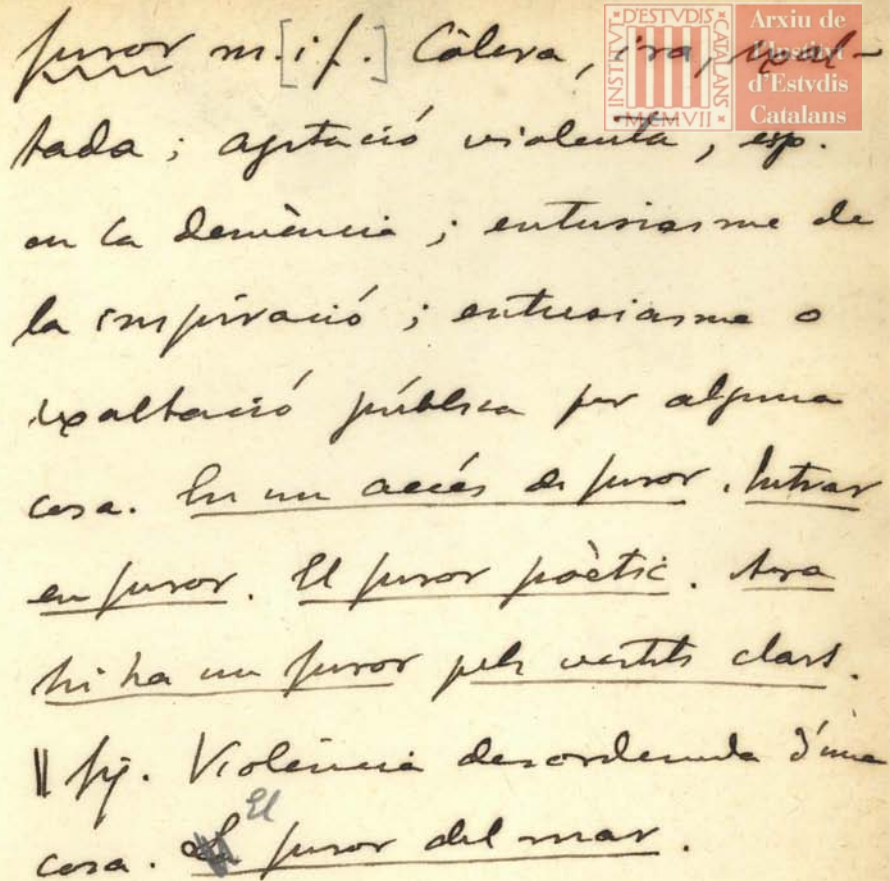 furor m. [i f.] Còlera, ira, exal-
tada; agitació violenta, esp.
en la demència; entusiasme de
la inspiració; entusiasme o
exaltació pública per alguna
cosa. En un accés de furor. Entrar
en furor. El furor poètic. Ara
hi ha un furor pels vestits clars.
|| fig. Violència desordenada d'una
El
cosa. furor del mar.
INSTITVT D'ESTVDIS CATALANS
MCMVII
Arxiu de
l'Institvt
d'Estvdis
Catalans